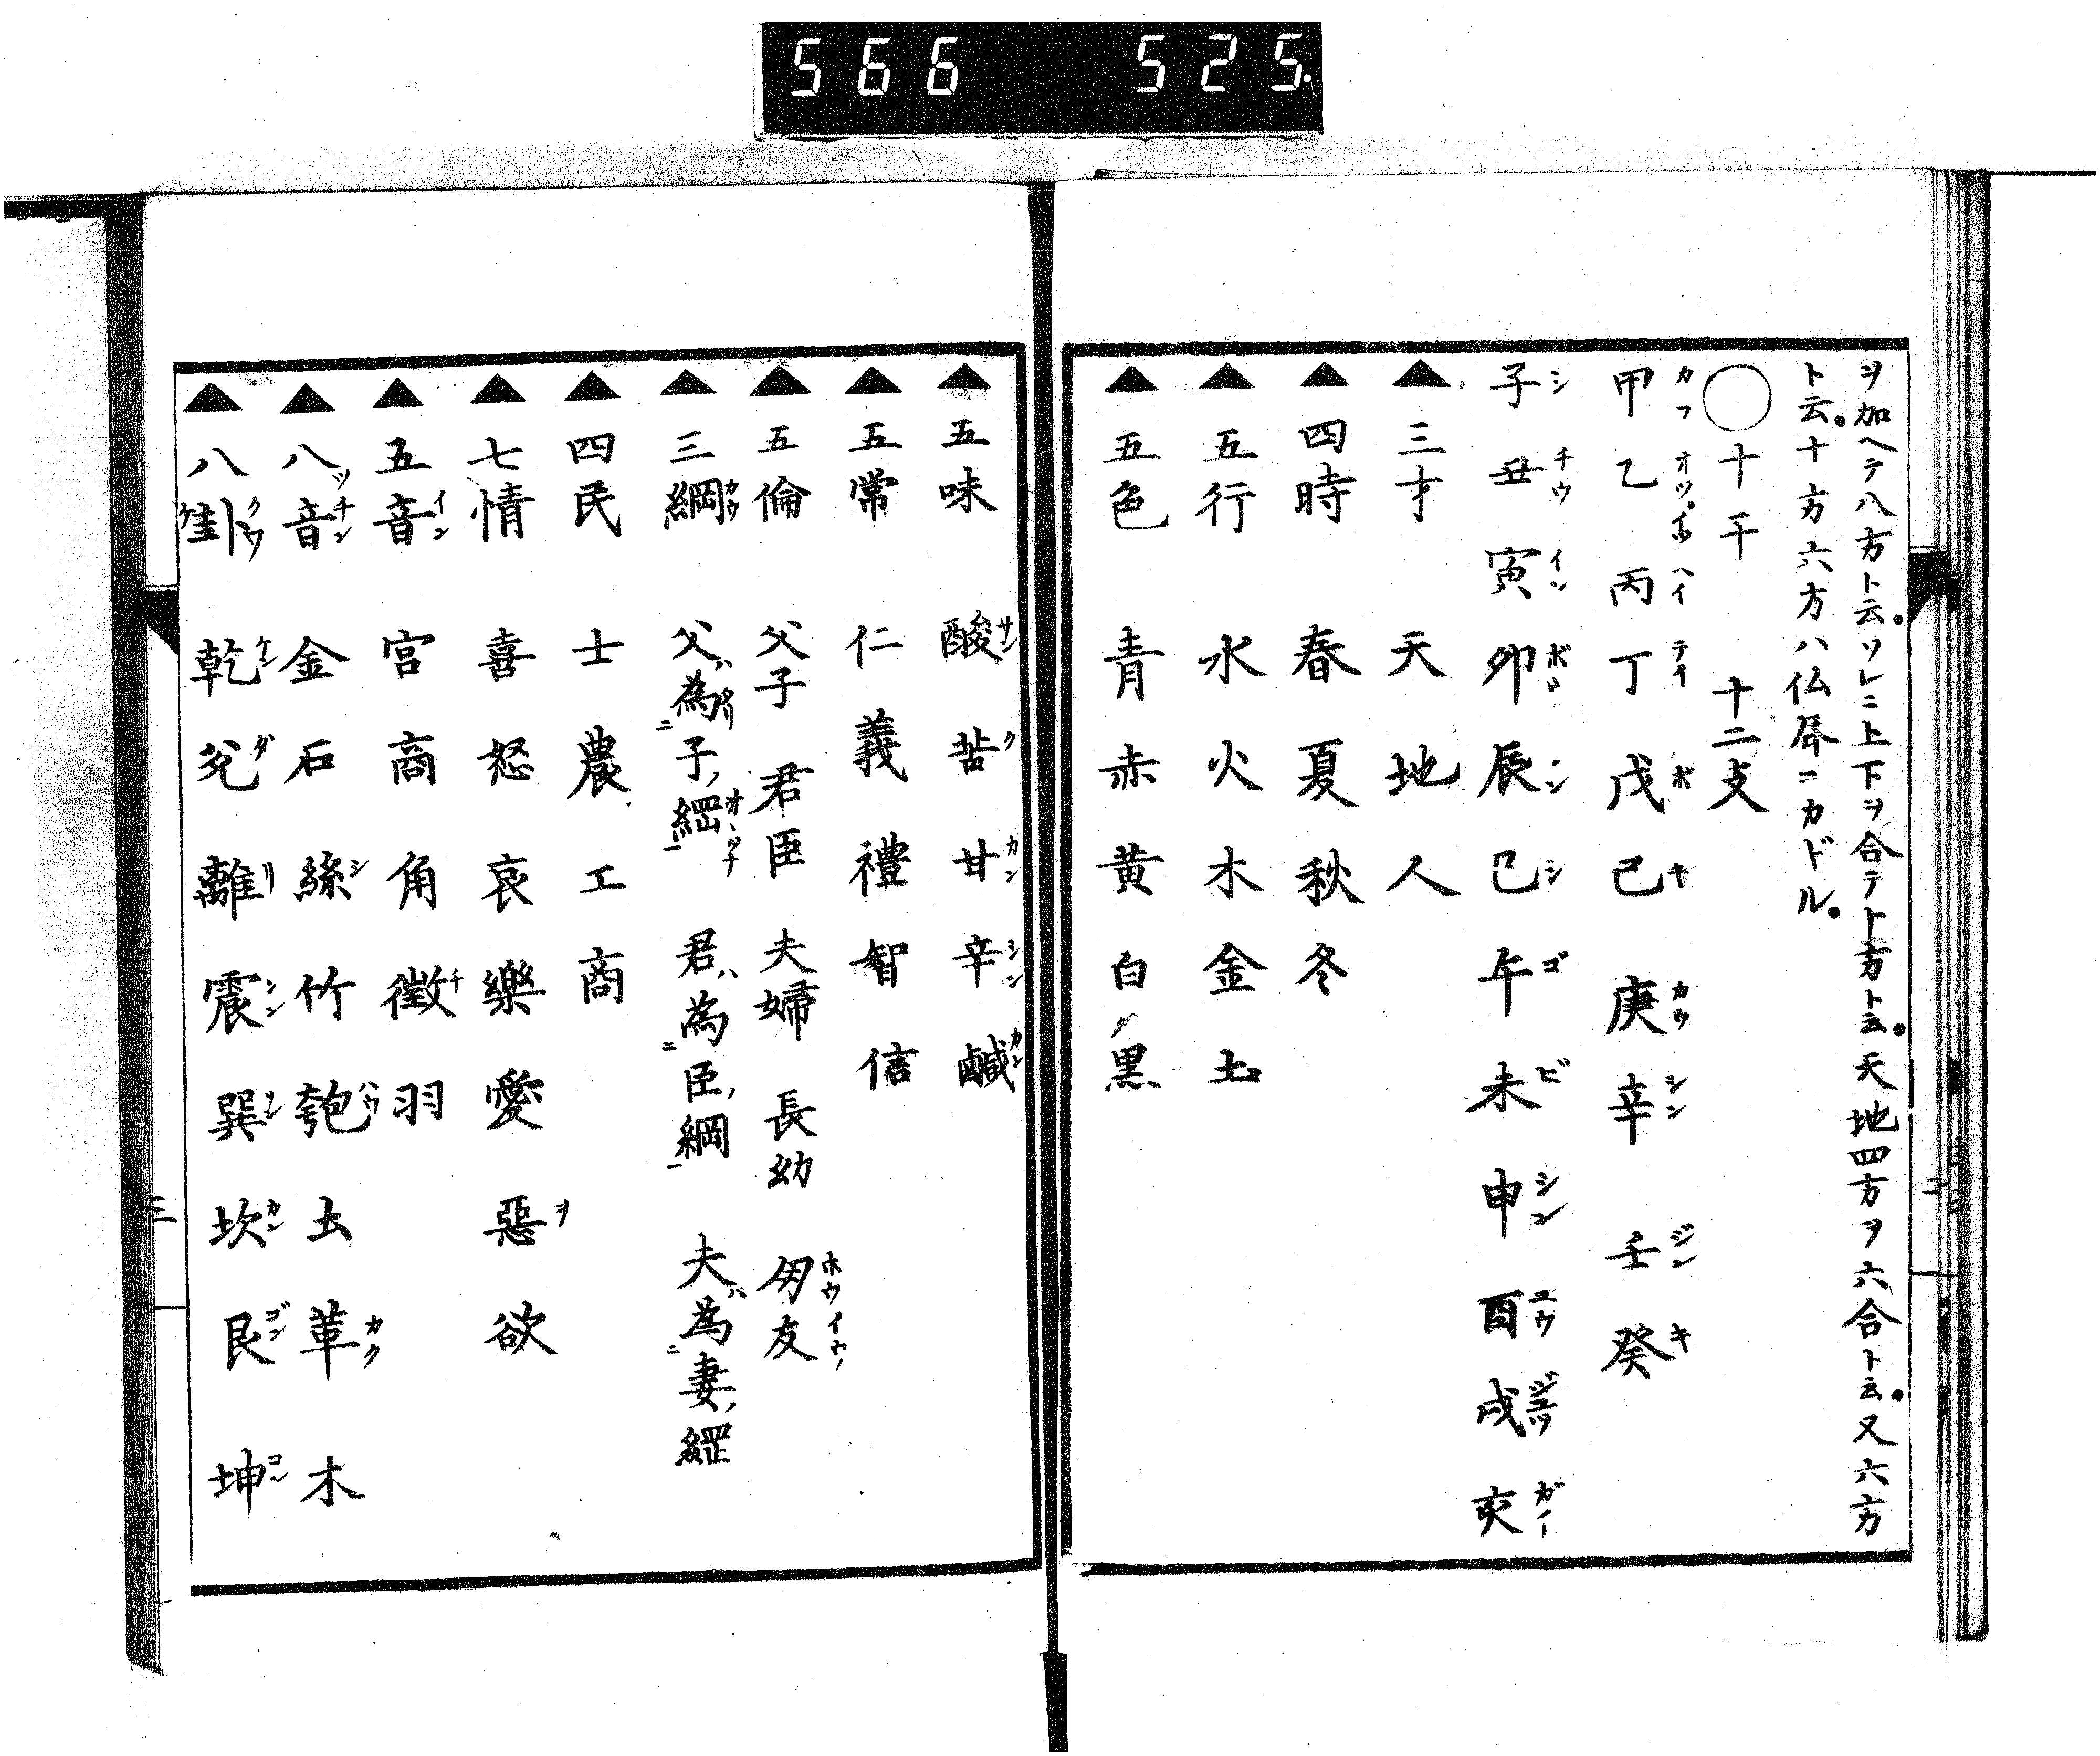 566 525.
ヲ加ヘテ八方ト云。ソレニ上下ヲ合テ十方ト云。天地四方ヲ六合ト云。又六方
ト云。十方六方ハ仏居ニカドル。
◯十干 十二支
甲乙丙丁戊己庚辛壬癸
子丑寅卯辰巳午未申酉戌亥
▲三才 天地人
▲四時 春夏秋冬
▲五行 水火木金土
▲五色 青赤黄白黒
▲五味 酸苦甘辛鹹
▲五常 仁義禮智信
▲五倫 父子 君臣 夫婦 長幼 朋友
▲三綱 父ハ為ニ子ノ綱一 君ハ為ニ臣ノ綱一 夫ハ為ニ妻ノ綱
▲四民 士農工商
▲七情 喜怒哀樂愛惡欲
▲五音 宮商角徴羽
▲八音 金石絲竹匏土革木
▲八卦 乾兌離震巽坎艮坤
三